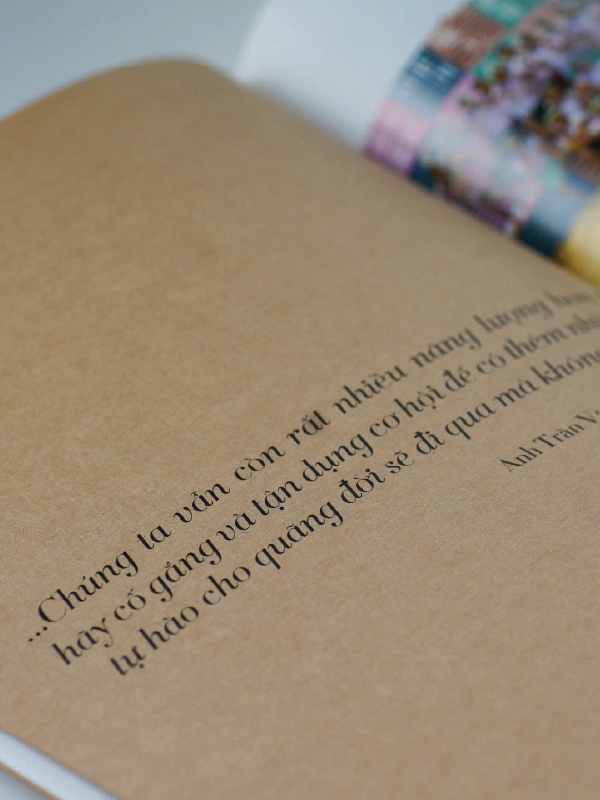 ...Chúng ta vẫn còn rất nhiều năng lượng
hãy cố gắng và tận dụng cơ hội để có thêm
tự hào cho quãng đời sẽ đi qua mà không
Anh Trần